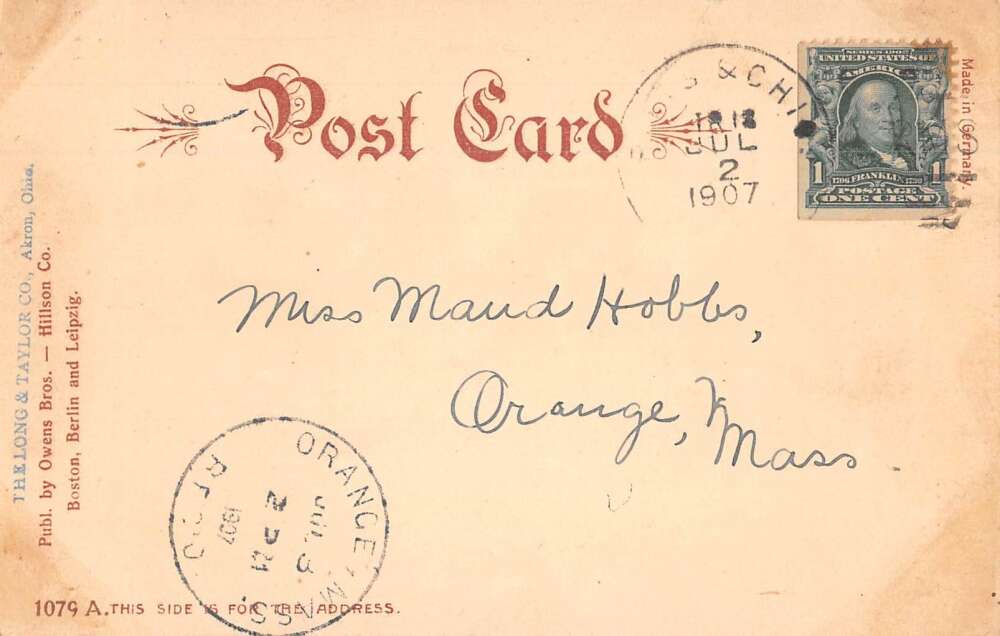 Post Card
& CHI
JUL
2
1907
SERIES 1902
UNITED STATES OF
AMERICA
1 1
1706 FRANKLIN 1790
POSTAGE
ONE CENT
Made in Germany.
Miss Maud Hobbs,
Orange,
Mass.
THE LONG & TAYLOR CO., Akron, Ohio.
Publ. by Owens Bros. — Hillson Co.
Boston, Berlin and Leipzig.
ORANGE, MASS.
JUL 3
2 P M
1907
REC'D
1079 A. THIS SIDE IS FOR THE ADDRESS.